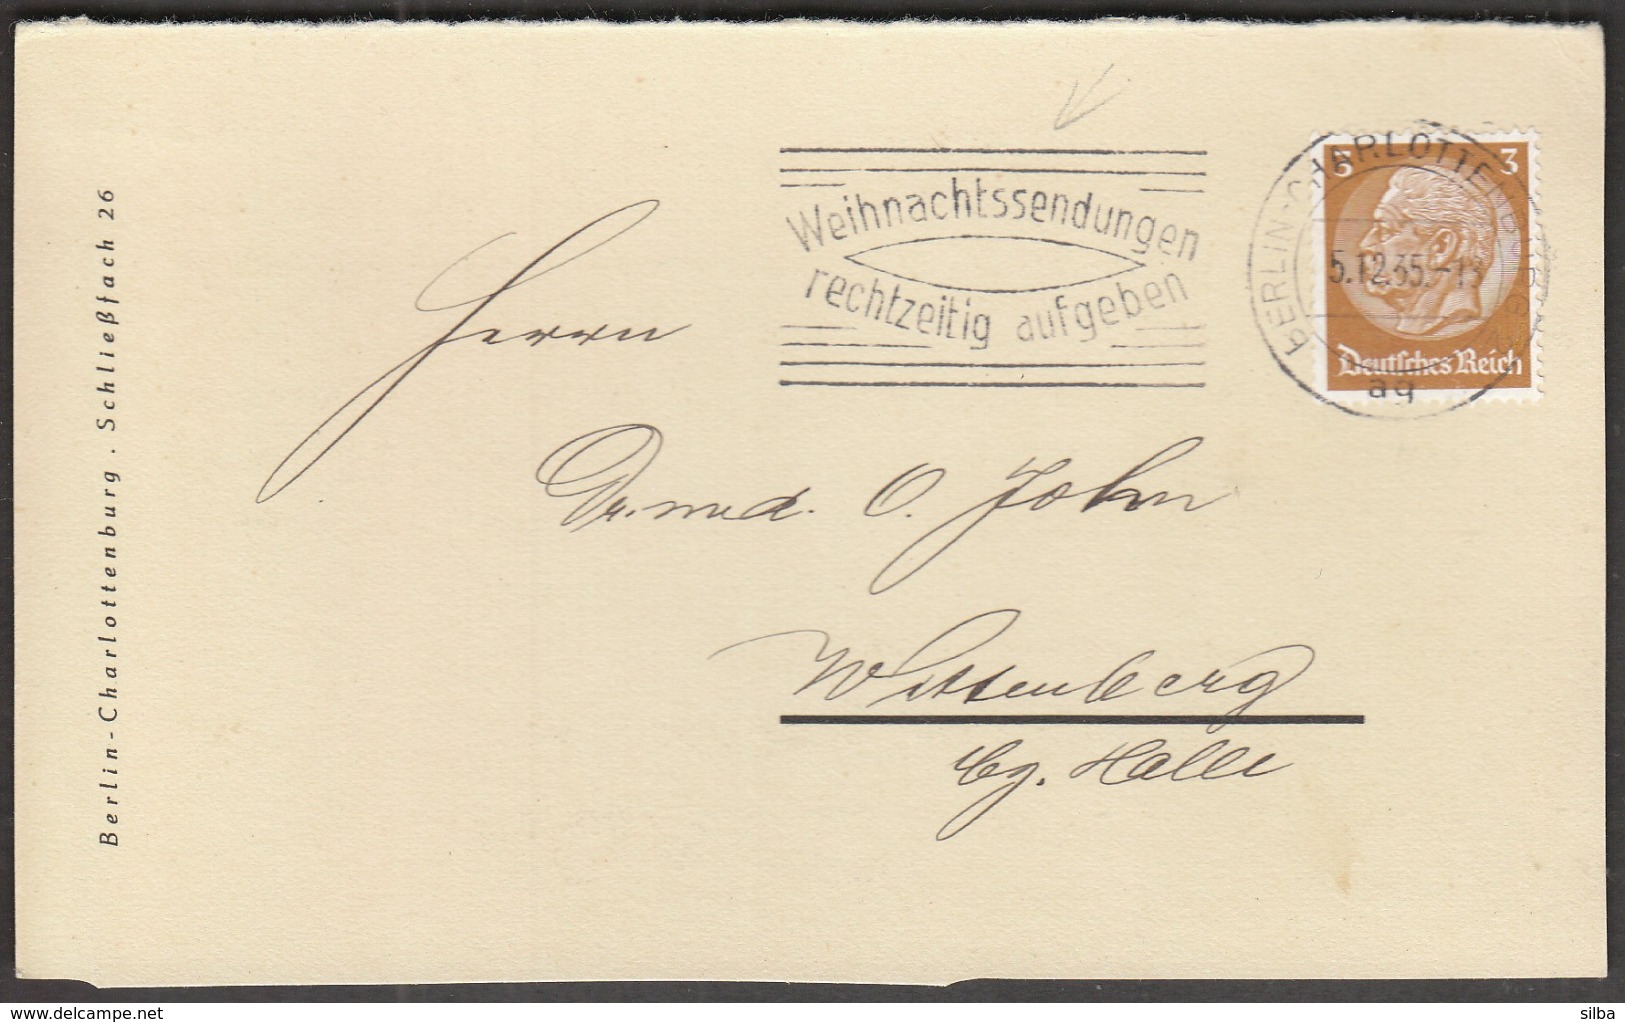 Berlin-Charlottenburg . Schließfach 26
Weihnachtssendungen
rechtzeitig aufgeben
BERLIN-CHARLOTTENBURG
5.12.35.-13
aq
3 3
Deutsches Reich
Herrn
Dr. med. O. John
Wittenberg
bz. Halle
delcampe.net
silba